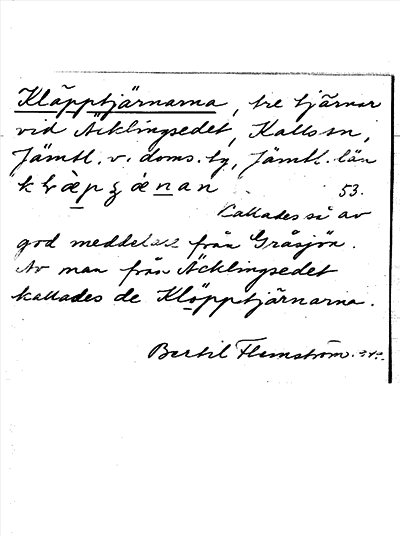 Kläpptjärnarna, tre tjärnar
vid Äcklingsedet, Kall sn,
Jämtl. v. doms. tg, Jämtl. län
53.
Kallades så av
god meddelare från Gråsjön.
Av man från Äcklingsedet
kallades de Klöpptjärnarna.
Bertil Flemström